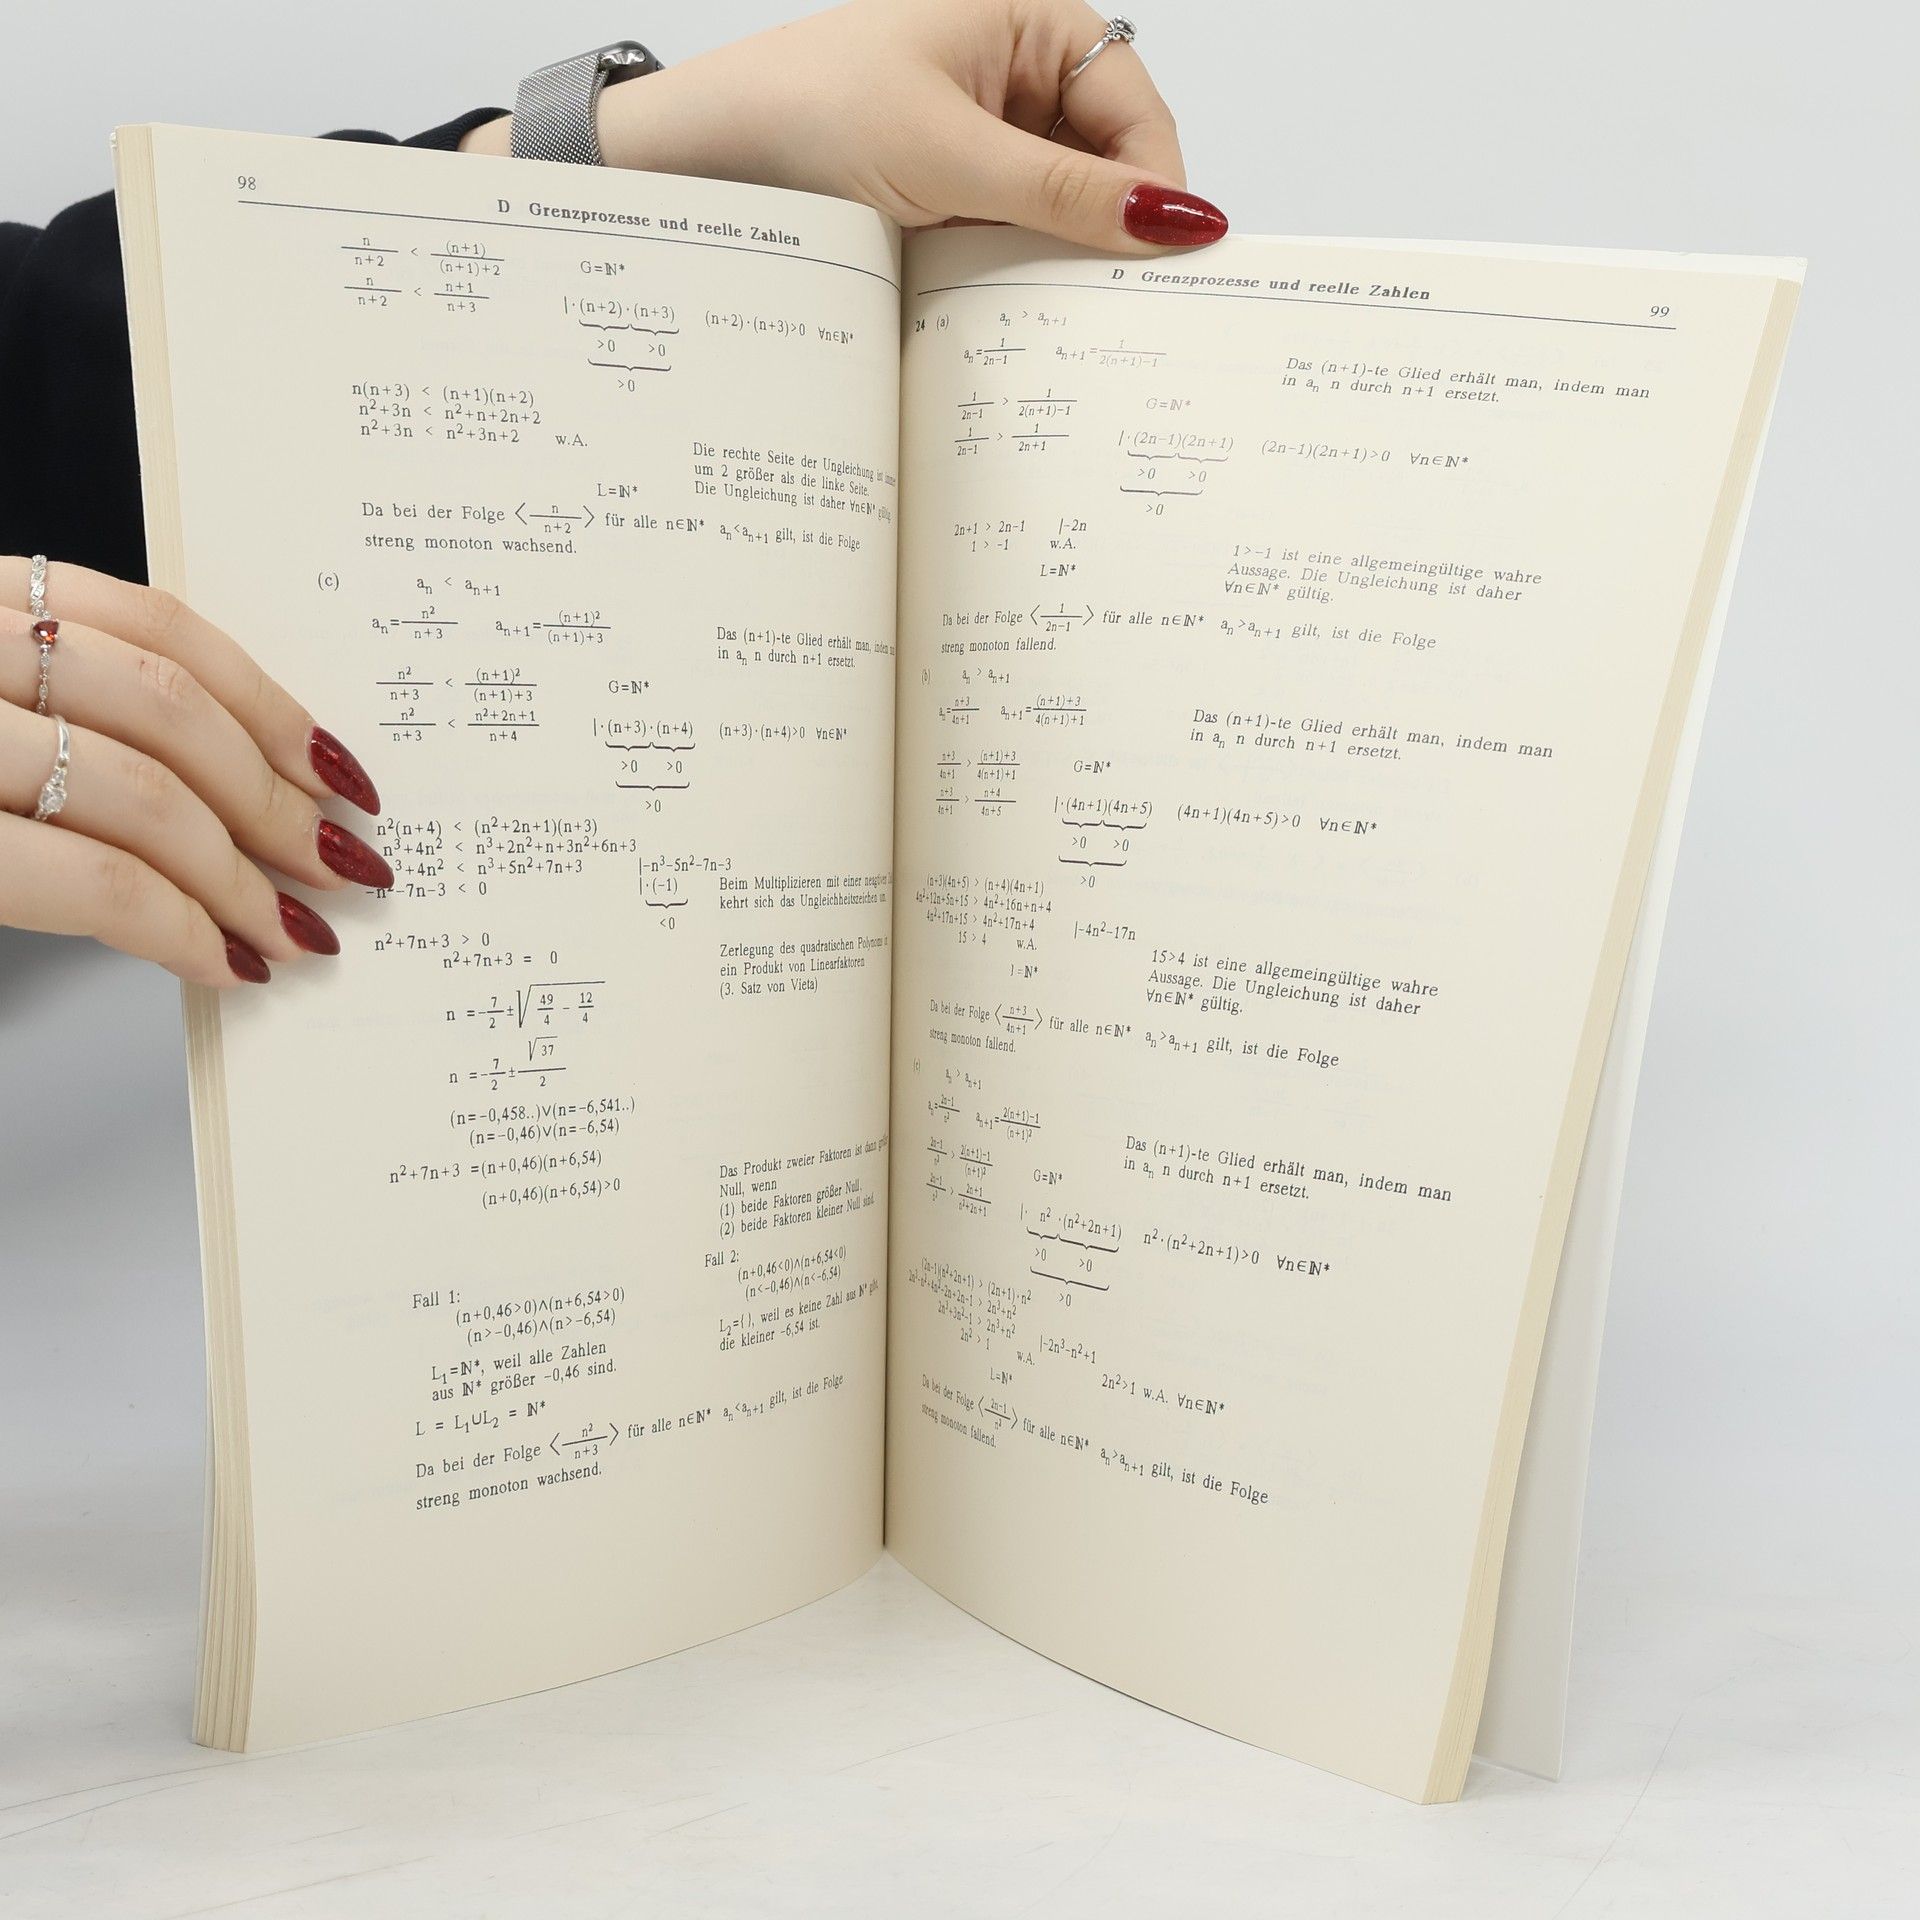 98
D Grenzprozesse und reelle Zahlen
n/(n+2) < (n+1)/((n+1)+2) G=ℕ*
n/(n+2) < (n+1)/(n+3) |·(n+2)·(n+3) (n+2)·(n+3)>0 ∀n∈ℕ*
>0 >0
>0
n(n+3) < (n+1)(n+2)
n²+3n < n²+n+2n+2
n²+3n < n²+3n+2 w.A.
Die rechte Seite der Ungleichung ist
um 2 größer als die linke Seite.
L=ℕ* Die Ungleichung ist daher ∀n∈ℕ* gültig.
Da bei der Folge ⟨n/(n+2)⟩ für alle n∈ℕ* aₙ<aₙ₊₁ gilt, ist die Folge
streng monoton wachsend.
(c) aₙ < aₙ₊₁
aₙ=n²/(n+3) aₙ₊₁=(n+1)²/((n+1)+3)
Das (n+1)-te Glied erhält man, indem
in aₙ n durch n+1 ersetzt.
n²/(n+3) < (n+1)²/((n+1)+3) G=ℕ*
n²/(n+3) < (n²+2n+1)/(n+4) |·(n+3)·(n+4) (n+3)·(n+4)>0 ∀n∈ℕ*
>0 >0
>0
n²(n+4) < (n²+2n+1)(n+3)
n³+4n² < n³+2n²+n+3n²+6n+3
³+4n² < n³+5n²+7n+3 |-n³-5n²-7n-3
-n²-7n-3 < 0 |·(-1) Beim Multiplizieren mit einer negativen
<0 kehrt sich das Ungleichheitszeichen um.
n²+7n+3 > 0
n²+7n+3 = 0
Zerlegung des quadratischen Polynoms in
ein Produkt von Linearfaktoren
(3. Satz von Vieta)
n =-7/2±√(49/4 - 12/4)
n =-7/2±√37/2
(n=-0,458..)∨(n=-6,541..)
(n=-0,46)∨(n=-6,54)
n²+7n+3 =(n+0,46)(n+6,54)
(n+0,46)(n+6,54)>0
Das Produkt zweier Faktoren ist dann
Null, wenn
(1) beide Faktoren größer Null,
(2) beide Faktoren kleiner Null sind.
Fall 1:
(n+0,46>0)∧(n+6,54>0)
(n>-0,46)∧(n>-6,54)
L₁=ℕ*, weil alle Zahlen
aus ℕ* größer -0,46 sind.
Fall 2:
(n+0,46<0)∧(n+6,54<0)
(n<-0,46)∧(n<-6,54)
L₂={ }, weil es keine Zahl aus ℕ* gibt,
die kleiner -6,54 ist.
L = L₁∪L₂ = ℕ*
Da bei der Folge ⟨n²/(n+3)⟩ für alle n∈ℕ* aₙ<aₙ₊₁ gilt, ist die Folge
streng monoton wachsend.
D Grenzprozesse und reelle Zahlen
99
24 (a) aₙ > aₙ₊₁
aₙ=1/(2n-1) aₙ₊₁=1/(2(n+1)-1)
Das (n+1)-te Glied erhält man, indem man
in aₙ n durch n+1 ersetzt.
1/(2n-1) > 1/(2(n+1)-1) G=ℕ*
1/(2n-1) > 1/(2n+1) |·(2n-1)(2n+1) (2n-1)(2n+1)>0 ∀n∈ℕ*
>0 >0
>0
2n+1 > 2n-1 |-2n
1 > -1 w.A.
L=ℕ*
1>-1 ist eine allgemeingültige wahre
Aussage. Die Ungleichung ist daher
∀n∈ℕ* gültig.
Da bei der Folge ⟨1/(2n-1)⟩ für alle n∈ℕ* aₙ>aₙ₊₁ gilt, ist die Folge
streng monoton fallend.
(b) aₙ > aₙ₊₁
aₙ=(n+3)/(4n+1) aₙ₊₁=((n+1)+3)/(4(n+1)+1)
Das (n+1)-te Glied erhält man, indem man
in aₙ n durch n+1 ersetzt.
(n+3)/(4n+1) > ((n+1)+3)/(4(n+1)+1) G=ℕ*
(n+3)/(4n+1) > (n+4)/(4n+5) |·(4n+1)(4n+5) (4n+1)(4n+5)>0 ∀n∈ℕ*
>0 >0
>0
(n+3)(4n+5) > (n+4)(4n+1)
4n²+12n+5n+15 > 4n²+16n+n+4
4n²+17n+15 > 4n²+17n+4 |-4n²-17n
15 > 4 w.A.
L=ℕ*
15>4 ist eine allgemeingültige wahre
Aussage. Die Ungleichung ist daher
∀n∈ℕ* gültig.
Da bei der Folge ⟨(n+3)/(4n+1)⟩ für alle n∈ℕ* aₙ>aₙ₊₁ gilt, ist die Folge
streng monoton fallend.
(c) aₙ > aₙ₊₁
aₙ=(2n-1)/n² aₙ₊₁=(2(n+1)-1)/(n+1)²
Das (n+1)-te Glied erhält man, indem man
in aₙ n durch n+1 ersetzt.
(2n-1)/n² > (2(n+1)-1)/(n+1)² G=ℕ*
(2n-1)/n² > (2n+1)/(n²+2n+1) |· n² ·(n²+2n+1) n²·(n²+2n+1)>0 ∀n∈ℕ*
>0 >0
>0
(2n-1)(n²+2n+1) > (2n+1)·n²
2n³-n²+4n²-2n+2n-1 > 2n³+n²
2n³+3n²-1 > 2n³+n² |-2n³-n²+1
2n² > 1 w.A. 2n²>1 w.A. ∀n∈ℕ*
L=ℕ*
Da bei der Folge ⟨(2n-1)/n²⟩ für alle n∈ℕ* aₙ>aₙ₊₁ gilt, ist die Folge
streng monoton fallend.